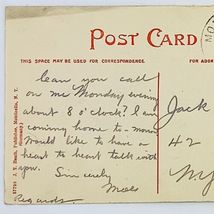 POST CARD
THIS SPACE MAY BE USED FOR CORRESPONDENCE.
FOR ADDR
Can you call
on me Monday evening
about 8 o'clock? I am
coming home to-morrow
Would like to have a
heart to heart talk with
you.
Sincerely
Regards
Jack
42
My